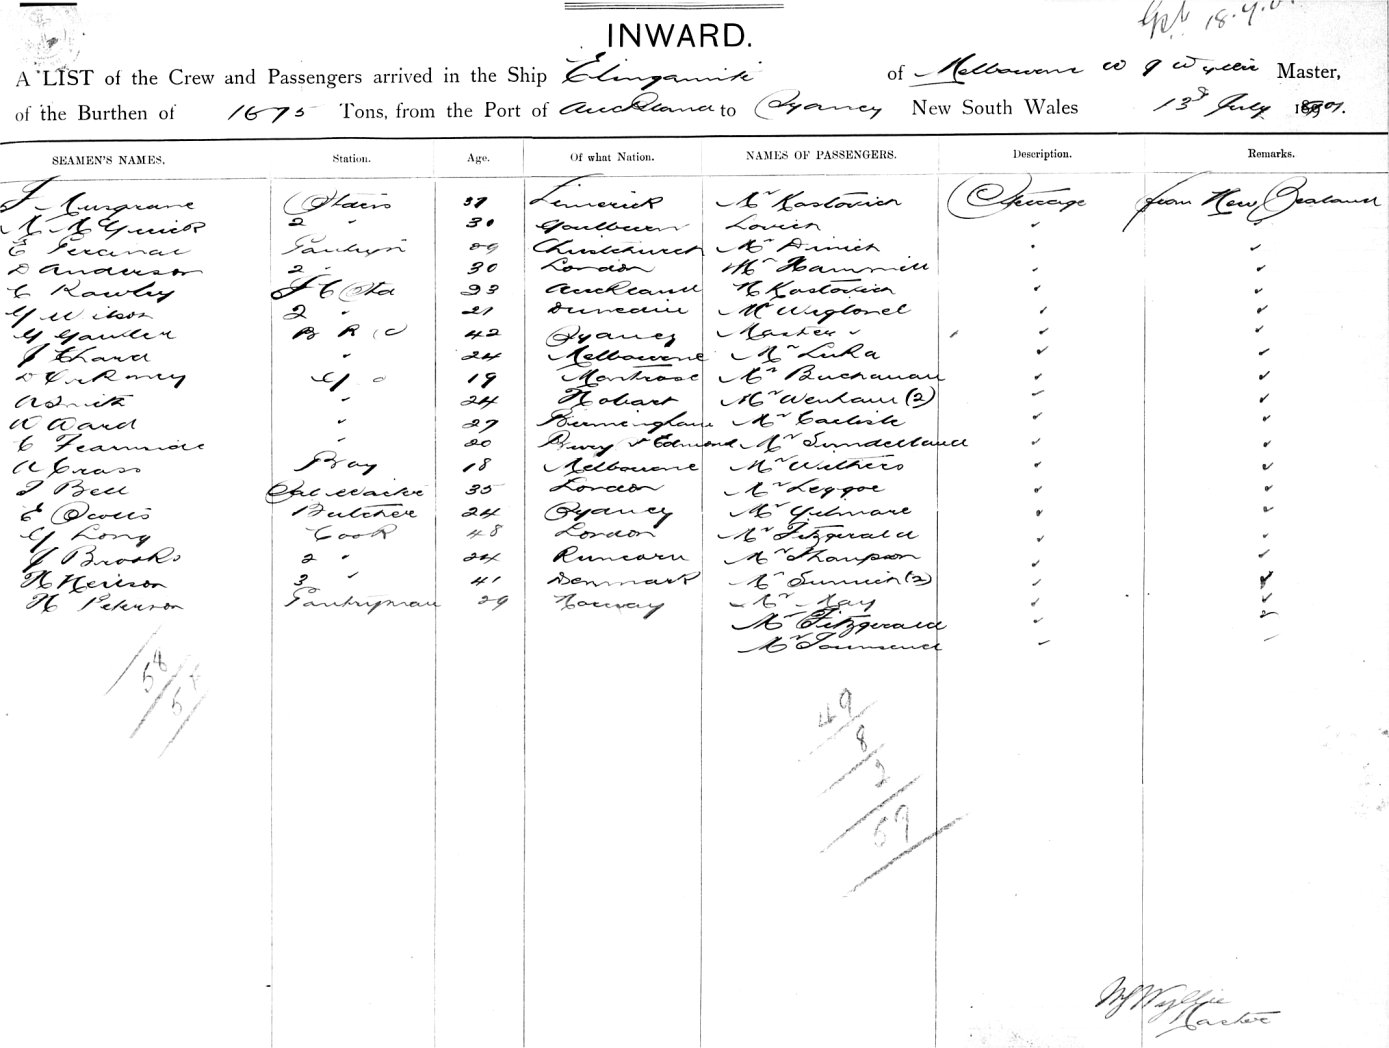 18.7.01
INWARD.
A LIST of the Crew and Passengers arrived in the Ship Elingamite of Melbourne W J Wyllie Master,
of the Burthen of 1675 Tons, from the Port of Auckland to Sydney New South Wales 13th July 1901.
SEAMEN'S NAMES. Station. Age. Of what Nation. NAMES OF PASSENGERS. Description. Remarks.
J Musgrave 37 Limerick Mr Kastovich Steerage from New Zealand
M McGuick 2 " 30 Goulburn Lovich "
E Percival Pantry 29 Christchurch Mr Dinich "
D Anderson 2 " 30 London Mr Hammill "
C Rawley F C Std 23 Auckland N Kastovich "
G Wilson 2 " 21 Dunedin Mr
G Gawler B R 42 Sydney Master "
J Chard " 24 Melbourne Mr Luka "
D 19 Montrose Mr Buchanan
A Smith " 24 Hobart Mr Wenham (2)
W Ward " 27 Birmingham Mr Carlisle "
C " 20 Bury St Edmond Mr Sunderland "
A Crass Boy 18 Melbourne Mr Withers "
J Bell 35 London Mr Leggoe "
E Scotts Butcher 24 Sydney Mr Gilmore "
G Long Cook 48 London Mr Fitzgerald "
J Brooks 2 " 24 Runcorn Mr Thompson "
N Neilson 3 " 41 Denmark Mr (2) "
H Peterson Pantryman 29 Norway Mr May "
Mr Fitzgerald "
Mr Townsend "
58
49
8
2
59
WJ Wyllie
Master